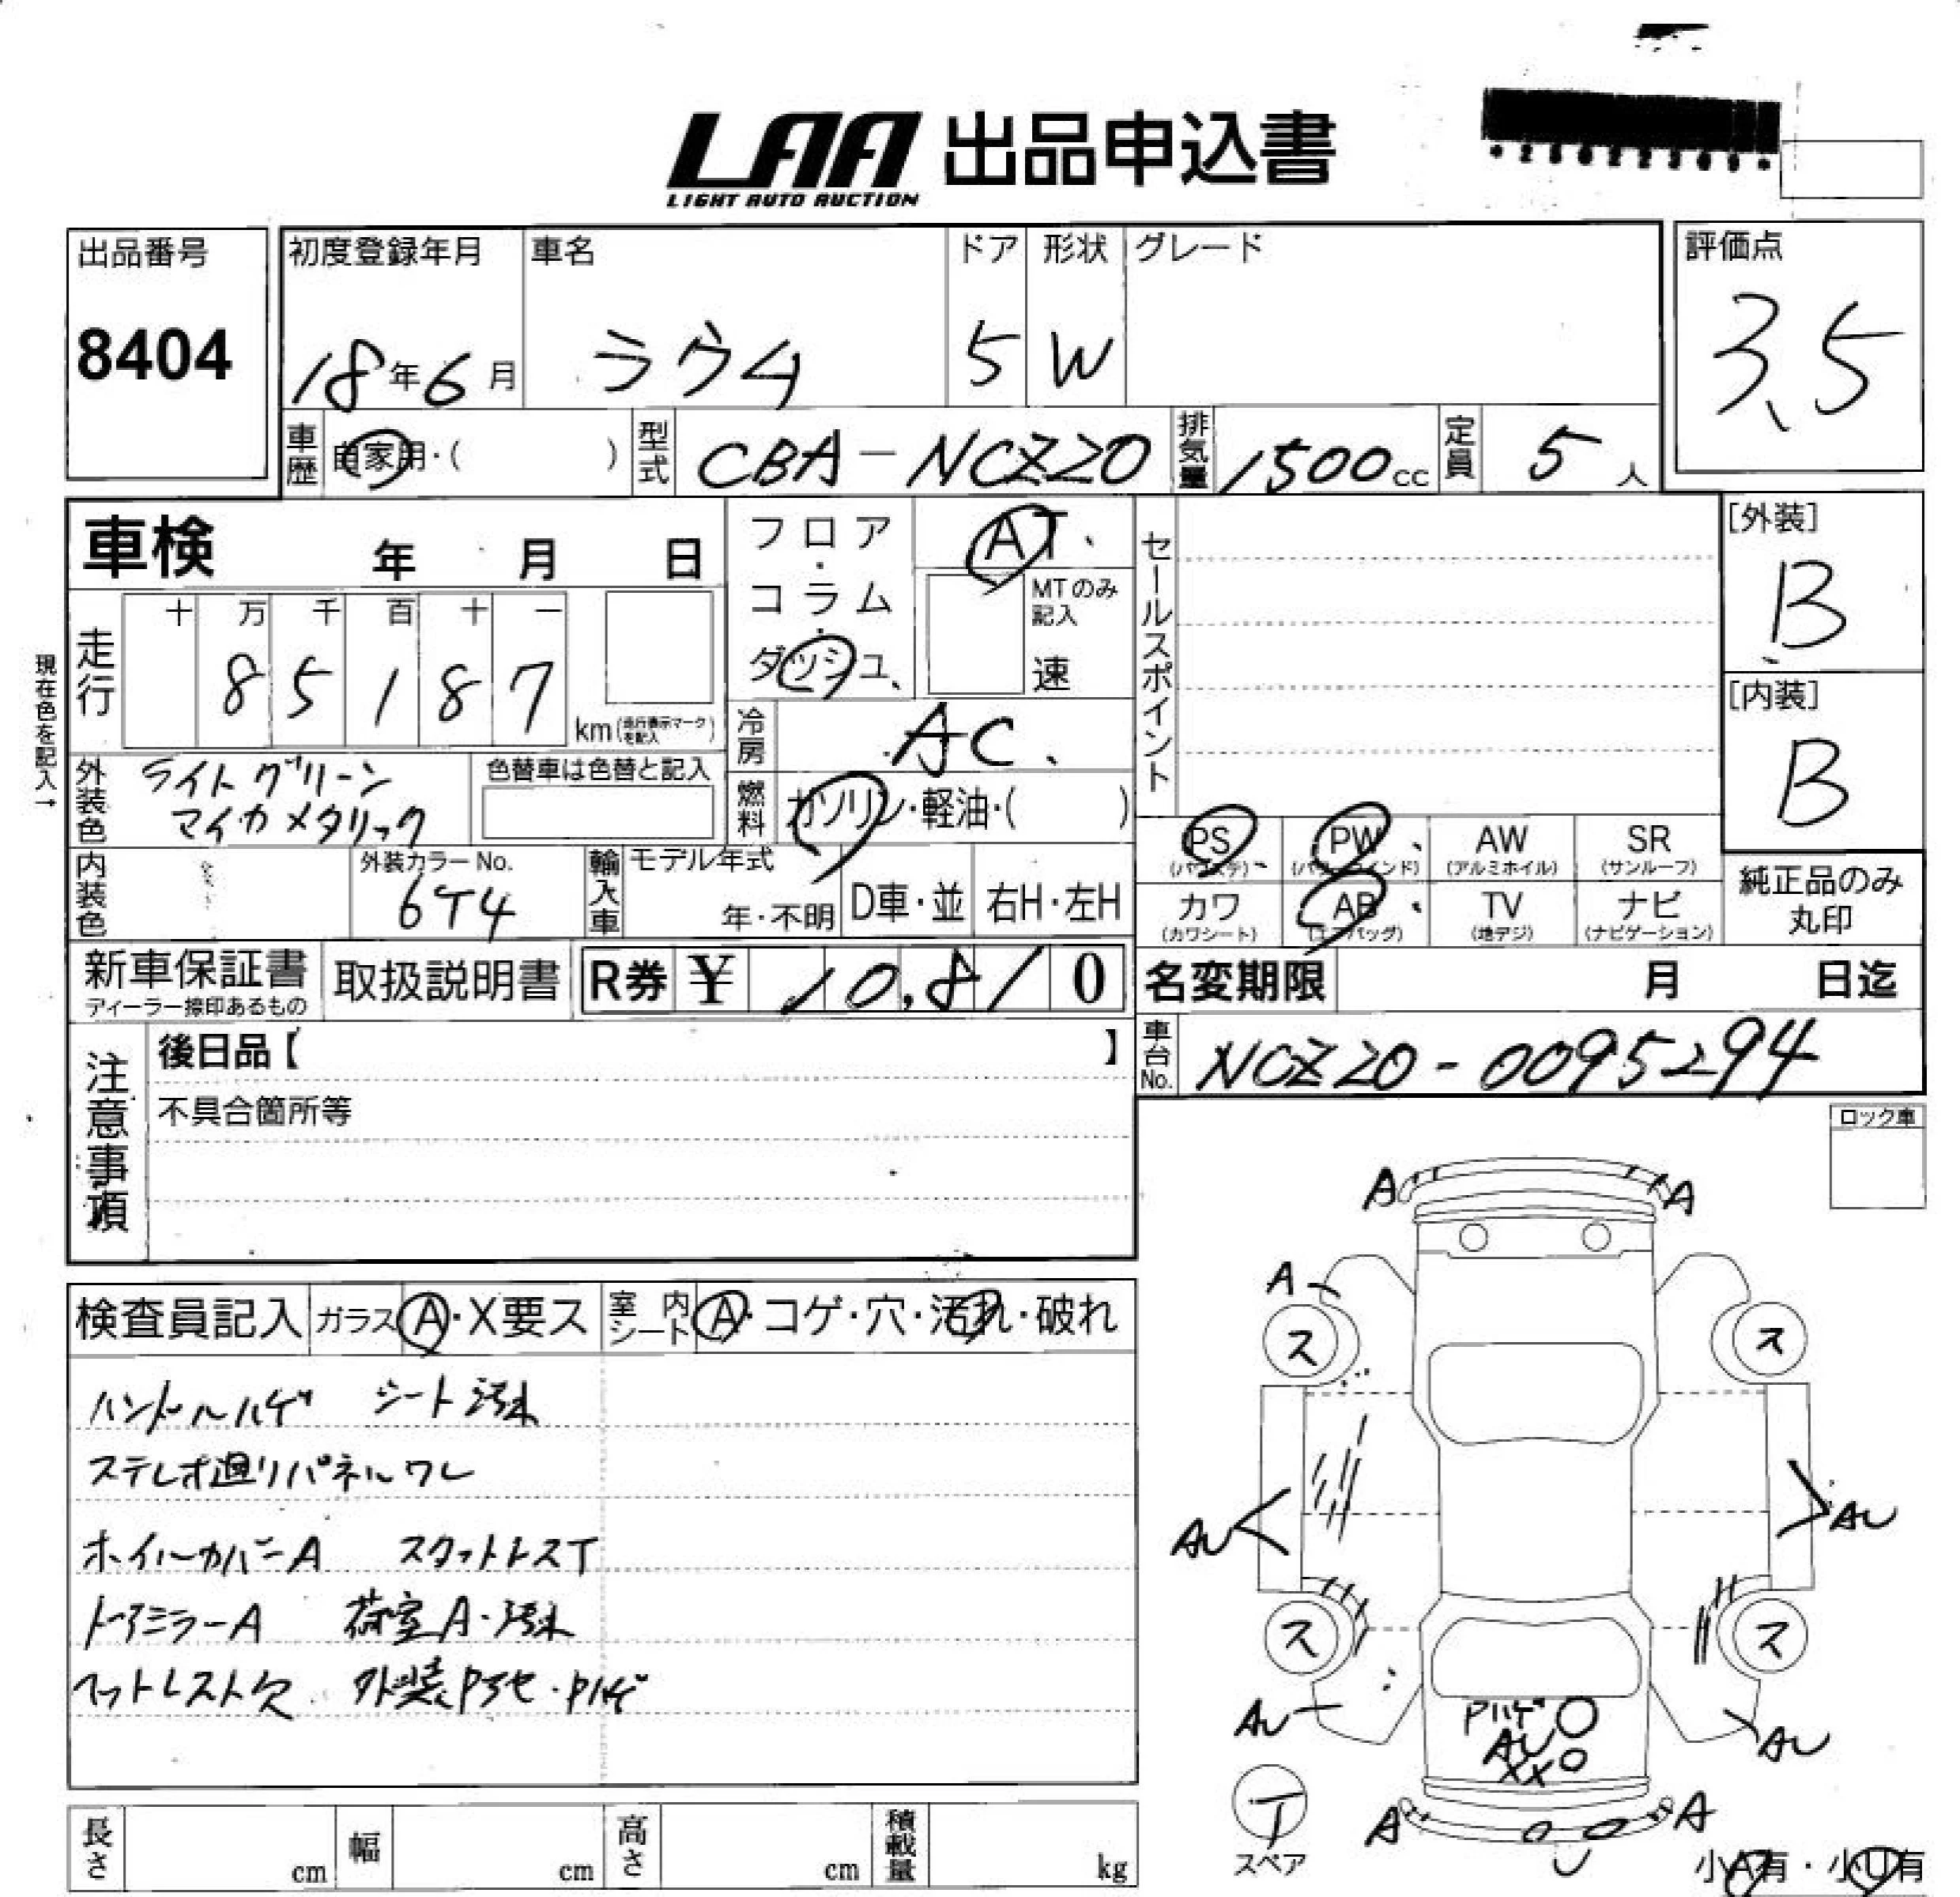 LAA 出品申込書
LIGHT AUTO AUCTION
出品番号
8404
初度登録年月
18年6月
車名
ラウム
ドア
5
形状
W
グレード
評価点
3.5
車歴
自家用・( )
型式
CBA-NCZ20
排気量
1500cc
定員
5人
車検 年 月 日
フロア・コラム・ダッシュ
AT
MTのみ記入
速
セールスポイント
[外装]
B
[内装]
B
現在色を記入→
走行
十 万 千 百 十 一
8 5 1 8 7
km(走行表示マークを記入)
冷房
AC
外装色
ライトグリーン
マイカメタリック
色替車は色替と記入
燃料
ガソリン・軽油・( )
内装色
外装カラーNo.
6T4
輸入車
モデル年式
年・不明
D車・並
右H・左H
PS
(パワステ)
PW
(パワーウインド)
AW
(アルミホイル)
SR
(サンルーフ)
カワ
(カワシート)
AB
(エアバッグ)
TV
(地デジ)
ナビ
(ナビゲーション)
純正品のみ
丸印
新車保証書
ディーラー捺印あるもの
取扱説明書
R券 ¥ 10,810
名変期限 月 日迄
車台No.
NCZ20-0095294
注意事項
後日品【 】
不具合箇所等
ロック車
検査員記入
ガラス A・X要ス
室内シート A・コゲ・穴・汚れ・破れ
ハンドルハゲ シート汚れ
ステレオ廻りパネルワレ
ホイールカバーA スタットレスT
ドアミラーA 荷室A・汚れ
フットレスト欠 外装Pヤセ・Pハゲ
A A
A
ス ス
AU AU
ス ス
AU AU
Pハゲ
AU
XX
T
スペア
A A
U
小A有・小U有
長さ cm
幅 cm
高さ cm
積載量 kg